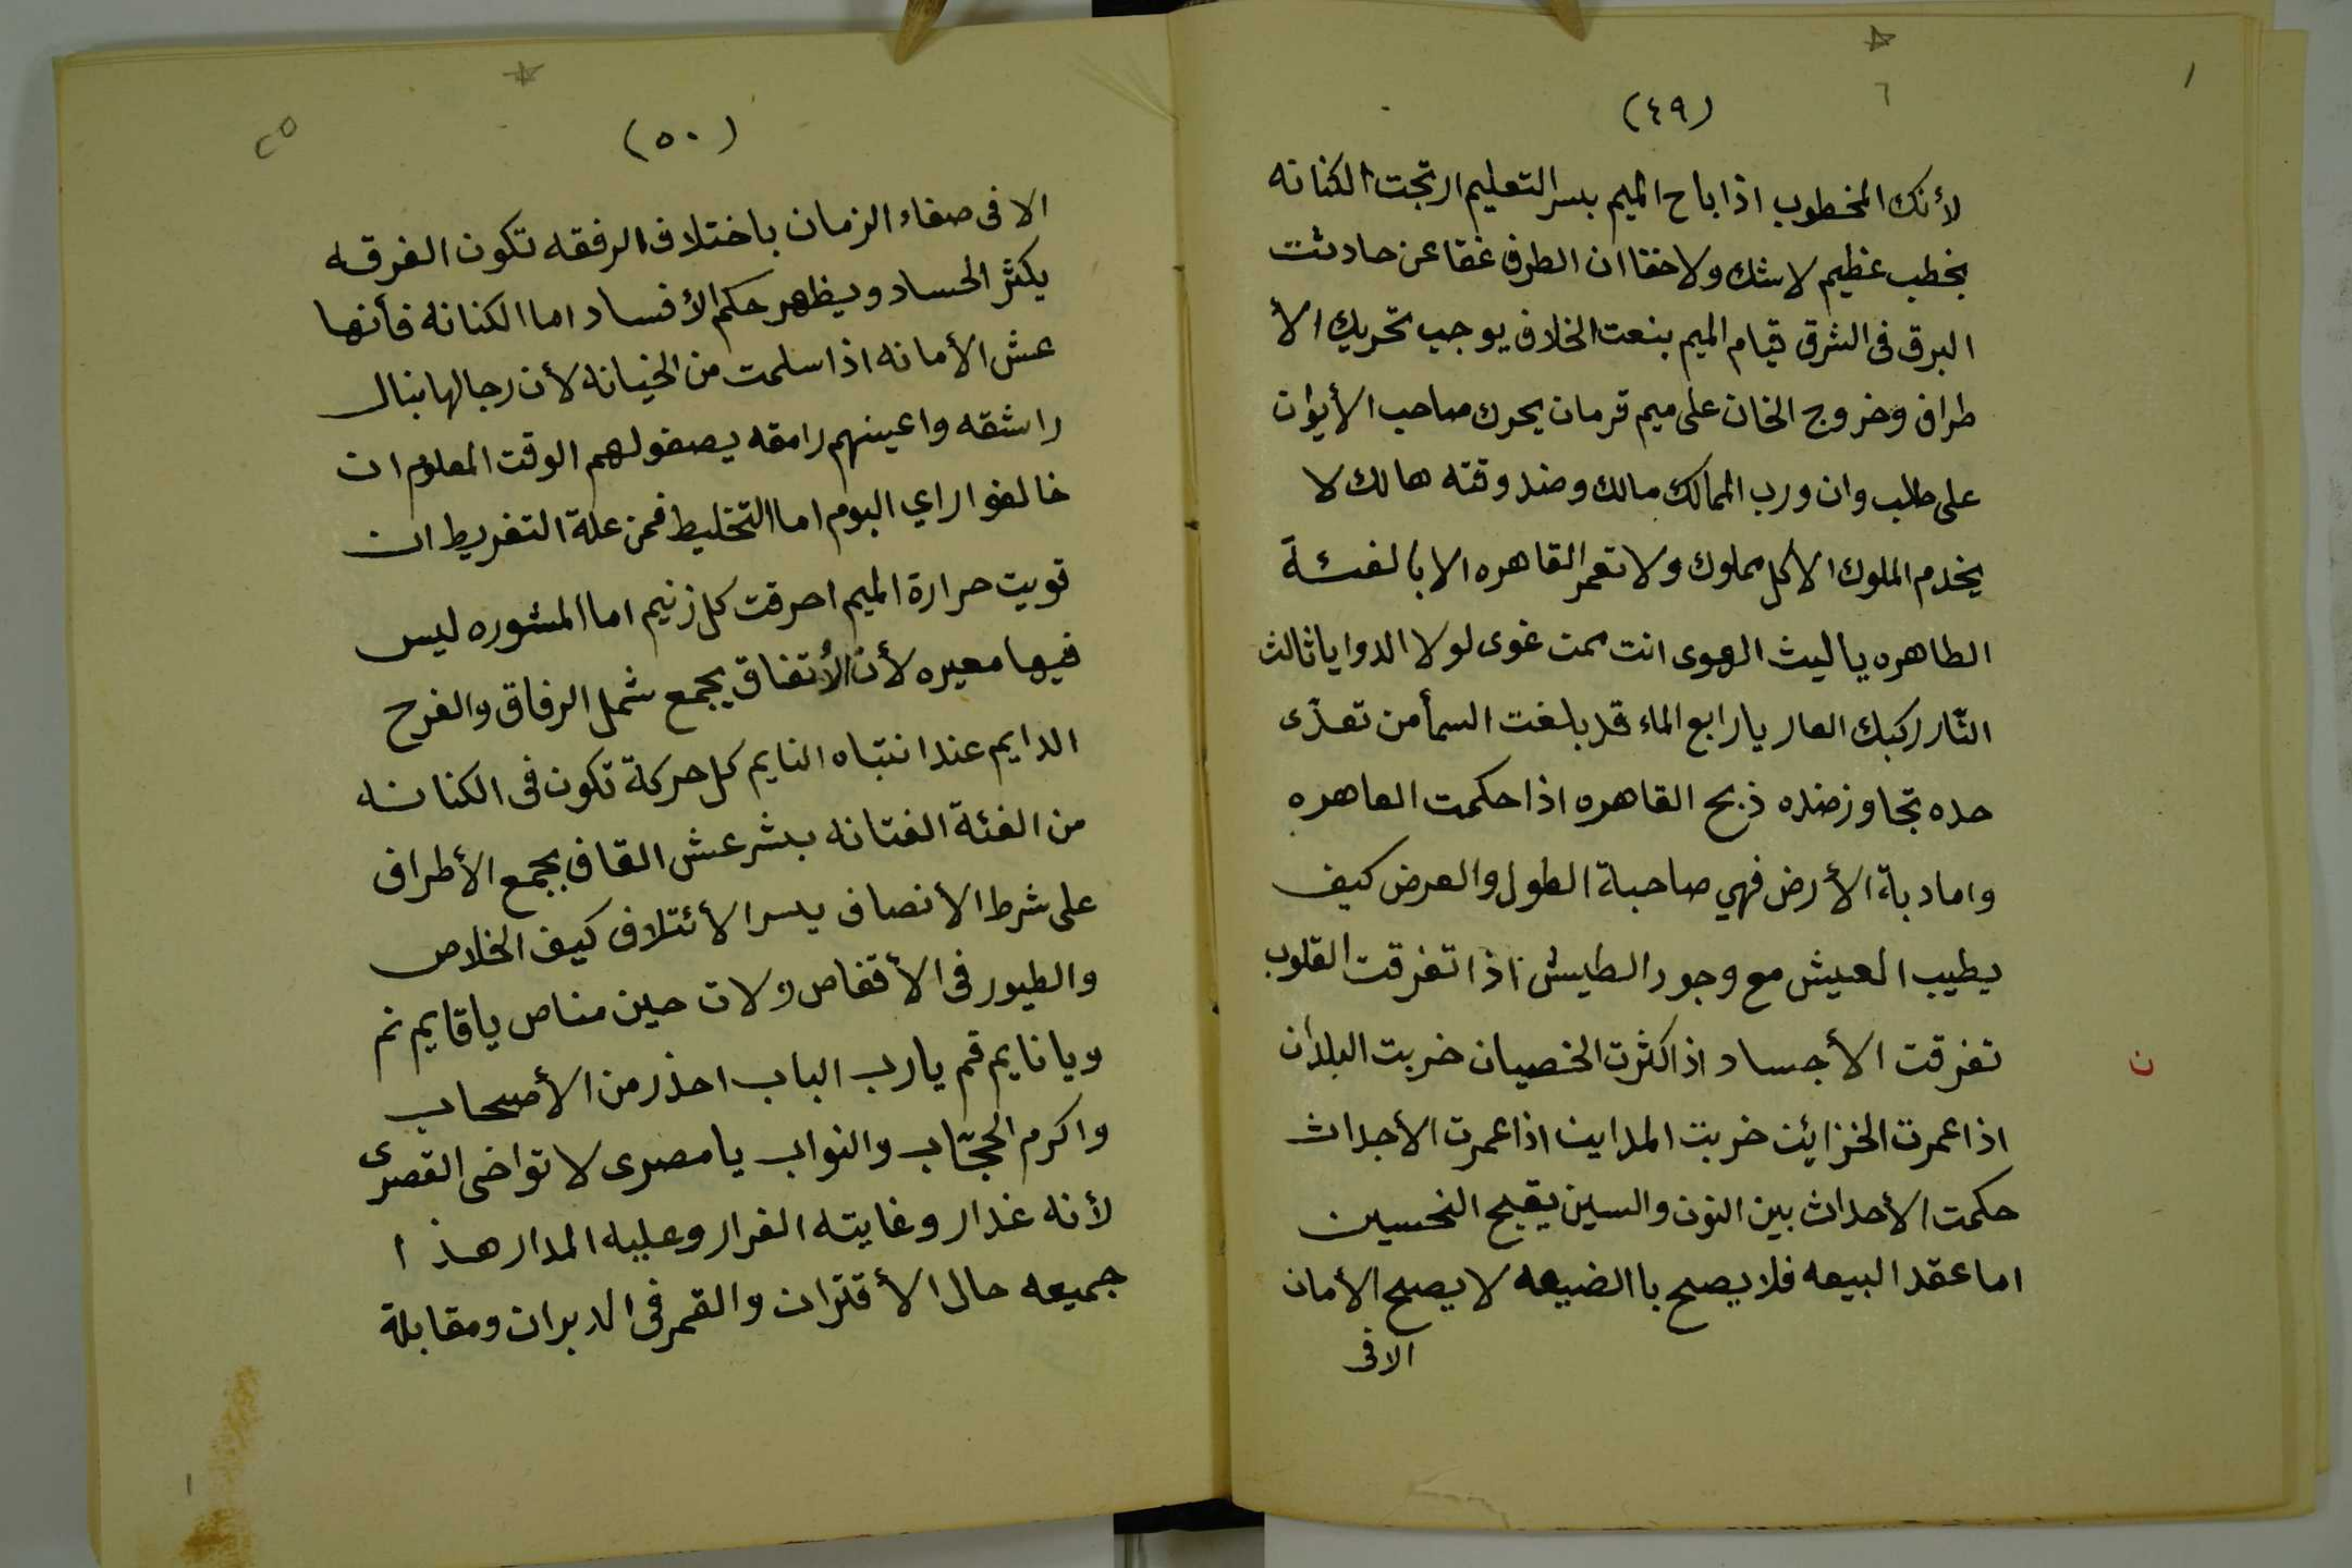 (٤٩)
لأنك المخطوب اذا باح الميم بسر التعليم ارتجت الكنانه
بخطب عظيم لا شك ولا خفا ان الطرف غفا عن حادثت
البرق فى الشرق قيام الميم بنعت الخلاف يوجب تحريك الأ
طراف وخروج الخان على ميم قرمان يحرك صاحب الأيوان
على طلب وان ورب الممالك مالك وضد وقته هالك لا
يخدم الملوك الا كل مملوك ولا تعمر القاهره الا بالفئة
الطاهره يا ليث الهوى انت ممن غوى لولا الدوا يا ثالث
النّار ركبك العار يا رابع الماء قد بلغت السمأ من تعدّى
حده تجاوز ضده ذبح القاهره اذا حكمت العاهره
واما دبة الأرض فهي صاحبة الطول والعرض كيف
يطيب العيش مع وجود الطيش اذا تفرقت القلوب
تفرقت الأجساد اذا كثرت الخصيان خربت البلدان
ن
اذا عمرت الخزائن خربت المداين اذا عمرت الأجداث
حكمت الأحداث بين النون والسين يقبح النحسين
اما عقد البيعه فلا يصح باالضيعه لا يصح الأمان
الا فى
(٥٠)
٢٥
الا فى صفاء الزمان باختلاف الرفقه تكون الفرقه
يكثر الحساد ويظهر حكم الأفساد اما الكنانه فأنها
عش الأمانه اذا سلمت من الخيانه لأن رجالها بنال
راشقه واعينهم رامقه يصفولهم الوقت المعلوم ان
خالفوا راي البوم اما التخليط فمن علة التفريط ان
قويت حرارة الميم احرقت كل زنيم اما المشوره ليس
فيها معيره لأن الأتفاق يجمع شمل الرفاق والفرح
الدايم عند انتباه النايم كل حركة تكون فى الكنانه
من الفئة الفتانه بشر عش القاف بجمع الأطراف
على شرط الأنصاف يسر الأئتلاف كيف الخلاص
والطيور فى الأقفاص ولات حين مناص يا قايم نم
ويا نايم قم يا رب الباب احذر من الأصحاب
واكرم الحجّاب والنواب يا مصرى لا تواخى القصرى
لأنه غدار وغايته الفرار وعليه المدار هذا
جميعه حال الأقتران والقمر فى الدبران ومقابلة